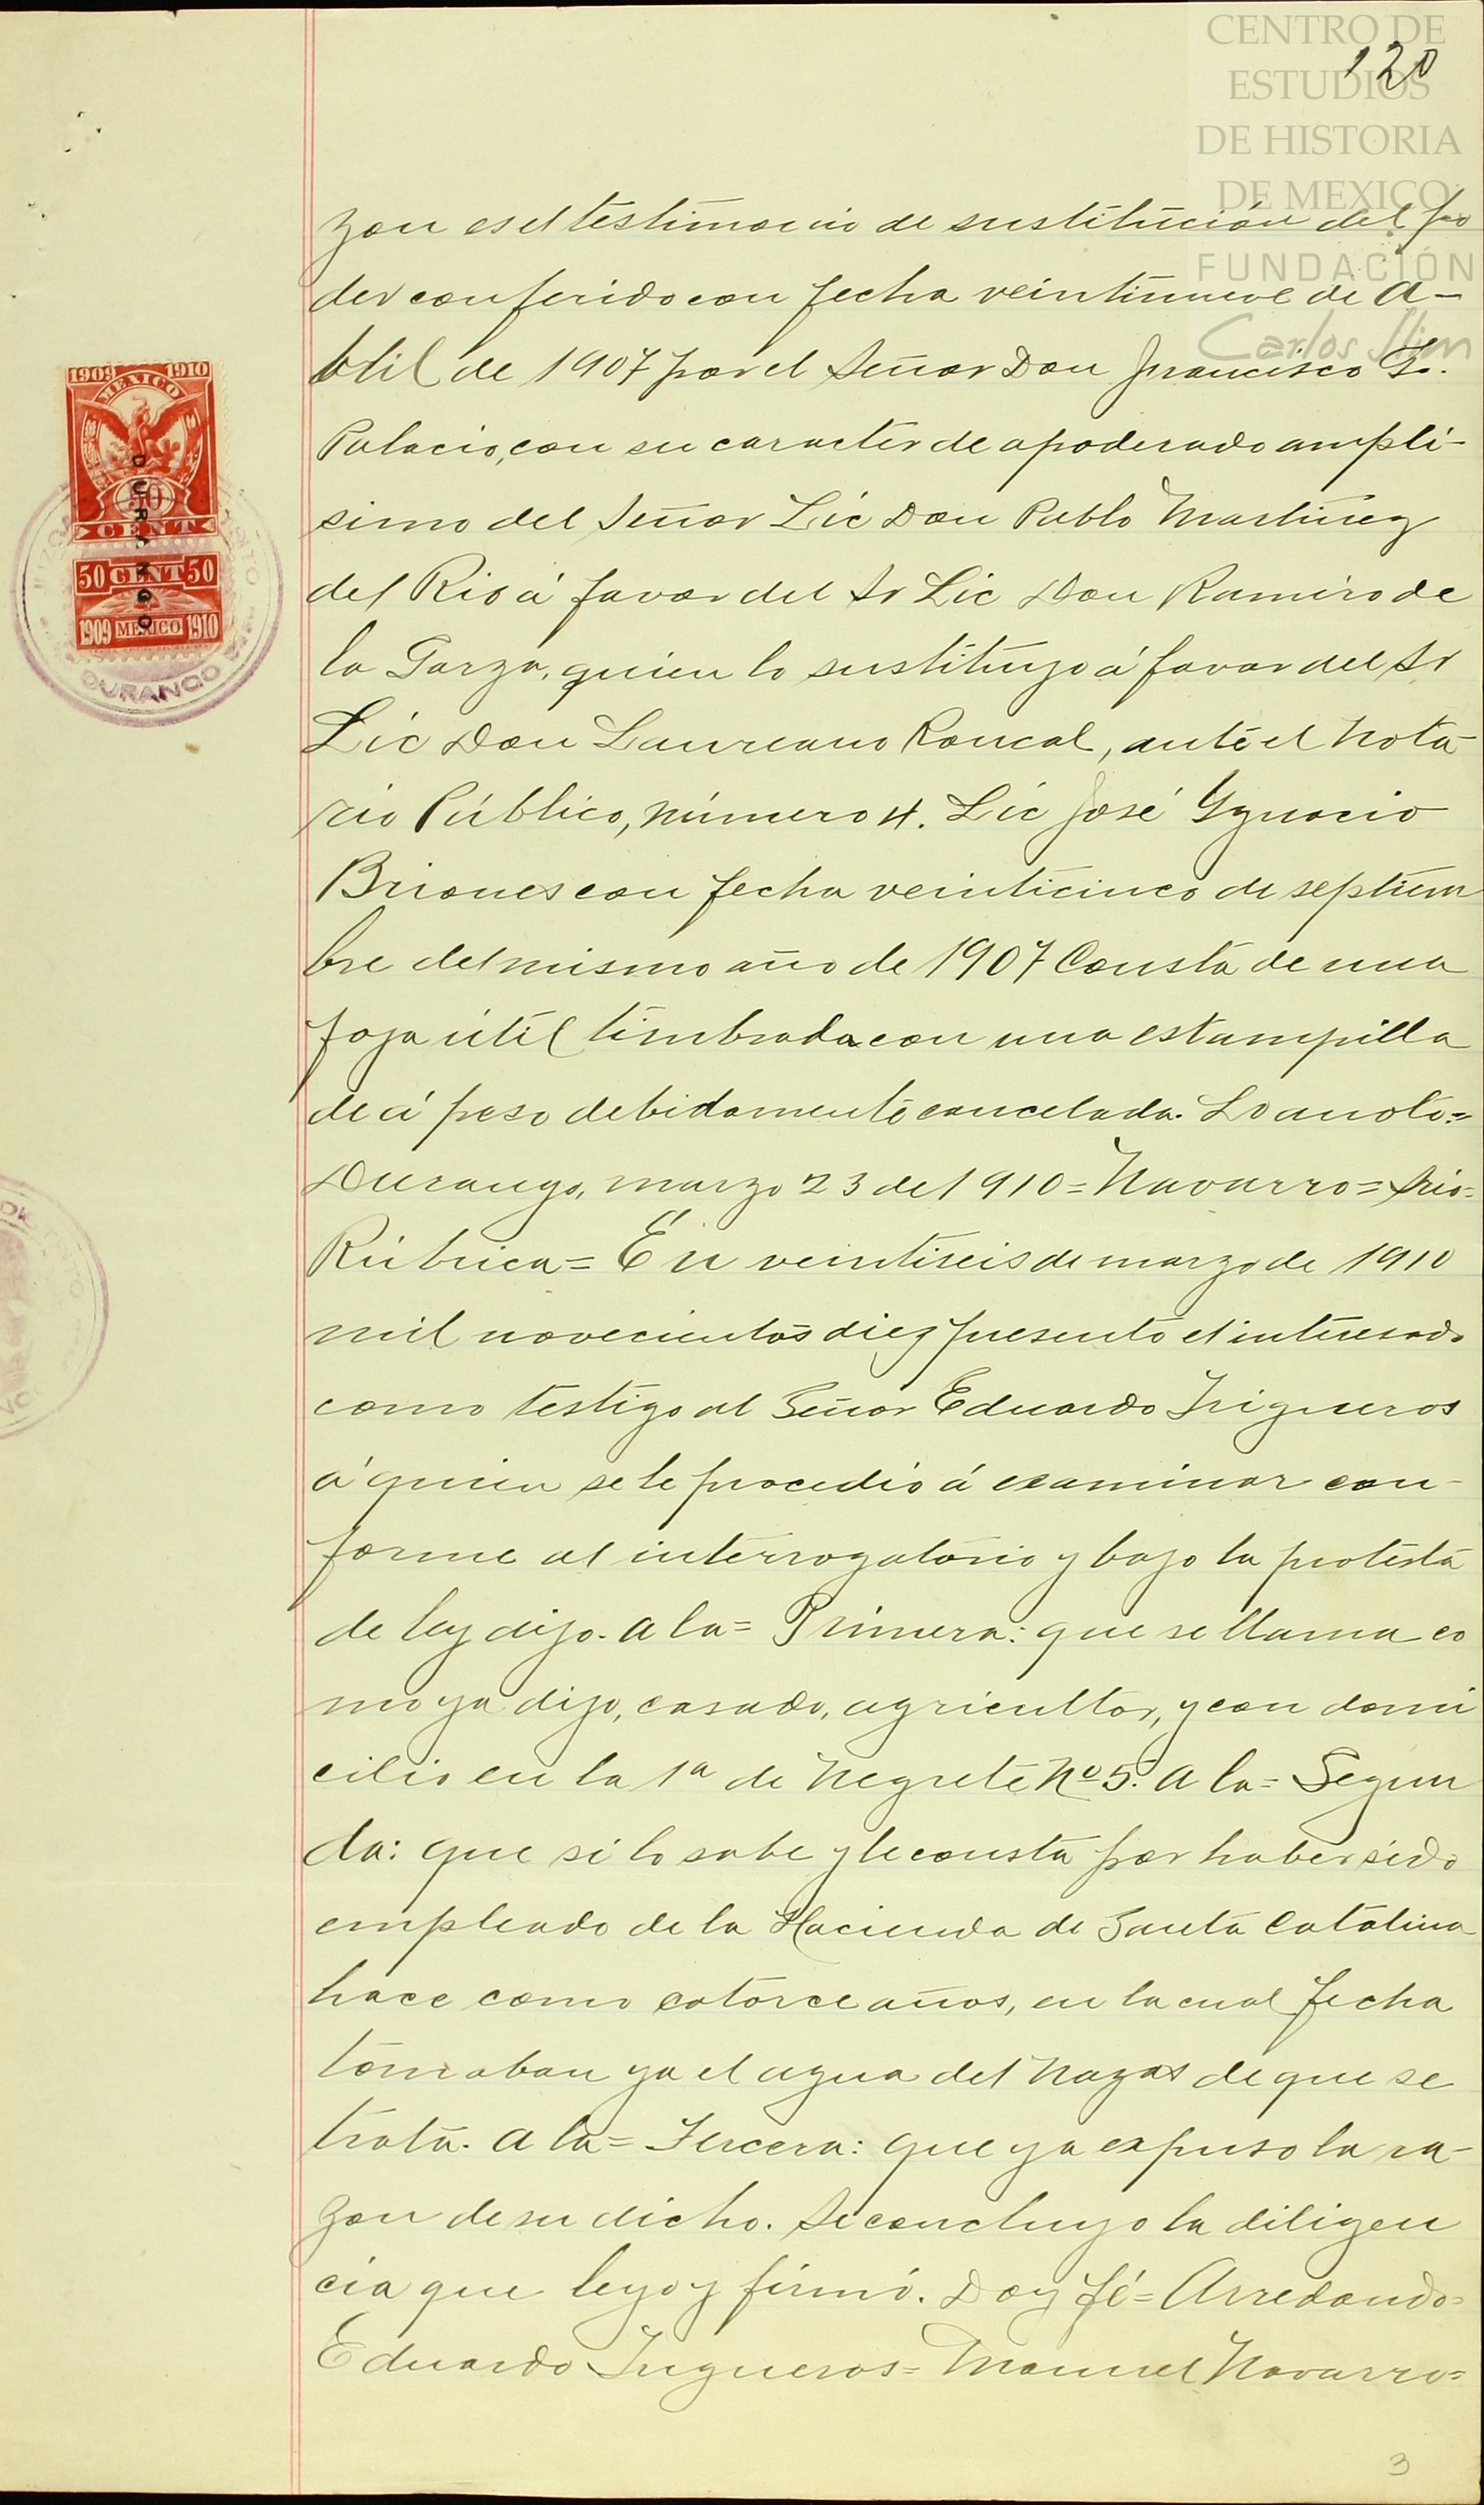 CENTRO DE
ESTUDIOS
DE HISTORIA
DE MEXICO
FUNDACIÓN
Carlos Slim
120
zon es el testimonio de sustitución del po
der conferido con fecha veintinueve de a-
bril de 1907 por el Señor Don Francisco G.
Palacio, con su caracter de apoderado ampli-
simo del Señor Lic Don Pablo Martinez
del Rio á favor del Sr Lic Don Ramiro de
la Garza, quien lo sustituyo á favor del Sr
Lic Don Laureano Roncal, ante el Nota-
rio Público, número 4. Lic José Ygnacio
Briones con fecha veinticinco de septiem
bre del mismo año de 1907 Consta de una
foja útil timbrada con una estampilla
de á peso debidamente cancelada. Lo anoto=
Durango, marzo 23 de 1910= Navarro= Srio=
Rúbrica= En veintiseis de marzo de 1910
mil novecientos diez presentó el interesado
como testigo al Señor Eduardo Trigueros
á quien se le procedió á examinar con-
forme al interrogatorio y bajo la protesta
de ley dijo. A la= Primera: que se llama co
mo ya dijo, casado, agricultor, y con domi
cilio en la 1a de Negrete No 5. A la= Segun
da: que si lo sabe y le consta por haber sido
empleado de la Hacienda de Santa Catalina
hace como catorce años, en la cual fecha
tomaban ya el agua del Nazas de que se
trata. A la= Tercera: que ya expuso la ra-
zon de su dicho. Se concluyo la diligen
cia que leyo y firmó. Doy fé= Arredondo=
Eduardo Trigueros= Manuel Navarro=
3
1909 1910
MEXICO
50
CENT
50 CENT 50
1909 MEXICO 1910
DURANGO
DURANGO